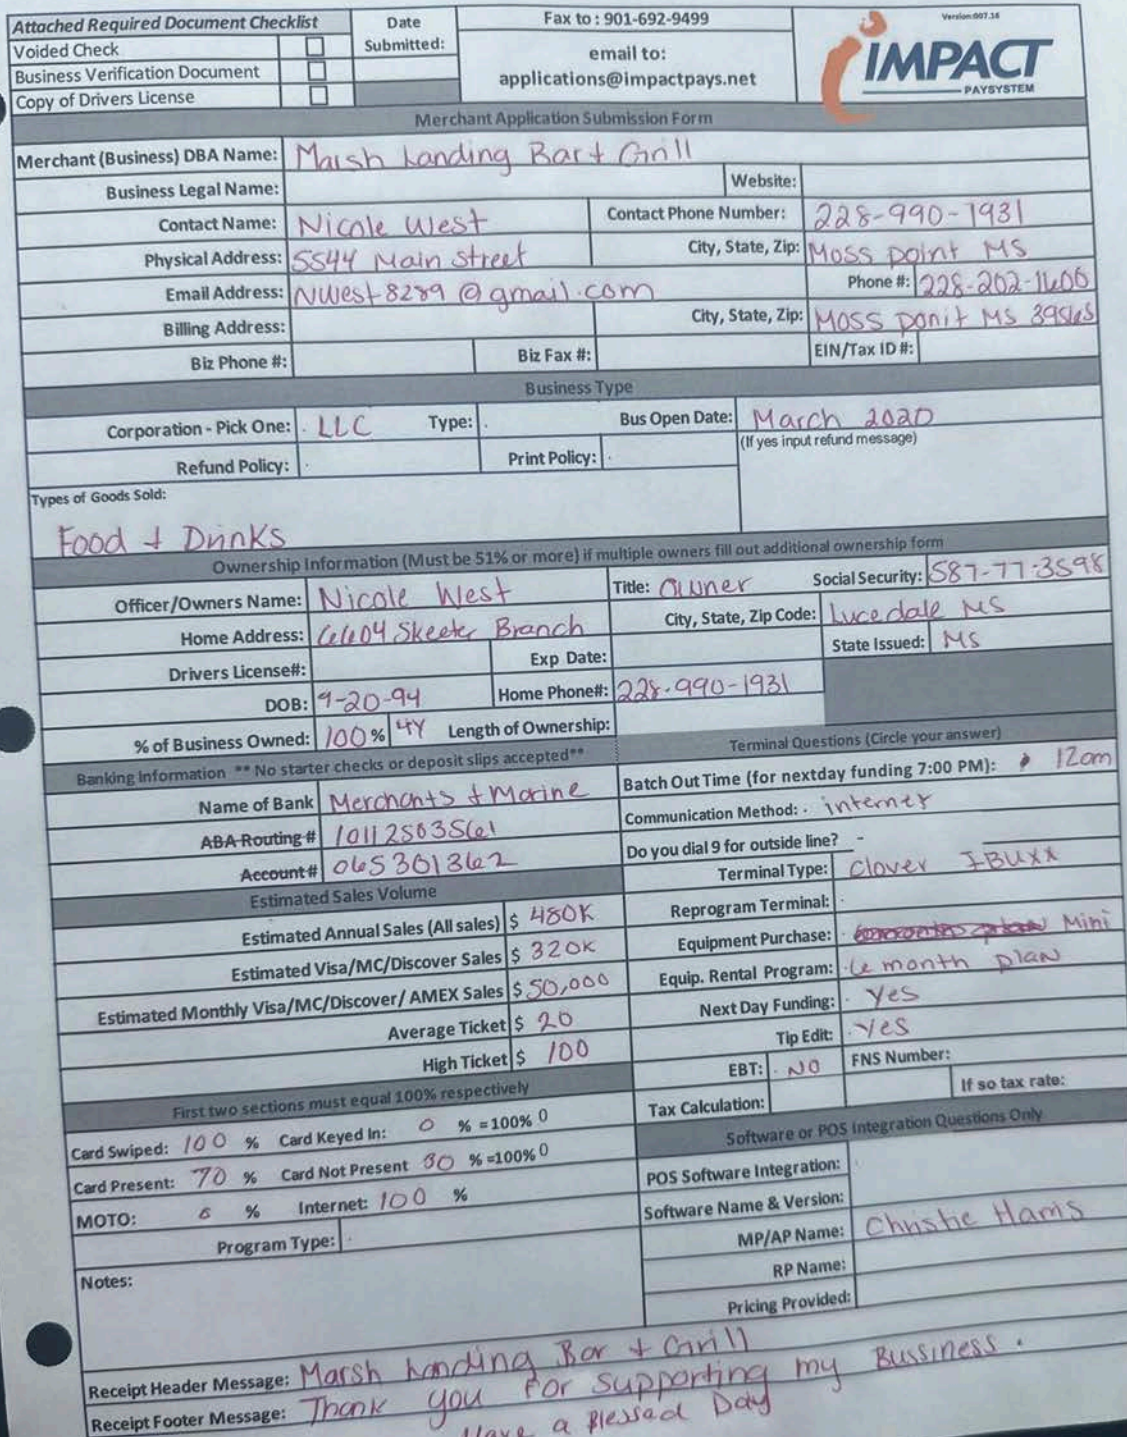 Attached Required Document Checklist
Date Submitted:
Fax to : 901-692-9499
Version:007.16
Voided Check
Business Verification Document
Copy of Drivers License
email to:
applications@impactpays.net
IMPACT
PAYSYSTEM
Merchant Application Submission Form
Merchant (Business) DBA Name: Marsh Landing Bar + Grill
Business Legal Name: Website:
Contact Name: Nicole West Contact Phone Number: 228-990-1931
Physical Address: 5544 Main Street City, State, Zip: Moss point MS
Email Address: NWest8289@gmail.com Phone #: 228-202-1600
Billing Address: City, State, Zip: Moss ponit MS 39563
Biz Phone #: Biz Fax #: EIN/Tax ID #:
Business Type
Corporation - Pick One: LLC Type: Bus Open Date: March 2020
Refund Policy: Print Policy: (If yes input refund message)
Types of Goods Sold:
Food + Drinks
Ownership Information (Must be 51% or more) if multiple owners fill out additional ownership form
Officer/Owners Name: Nicole West Title: Owner Social Security: 587-77-3598
Home Address: 6604 Skeeter Branch City, State, Zip Code: Lucedale MS
Drivers License#: Exp Date: State Issued: MS
DOB: 9-20-94 Home Phone#: 228-990-1931
% of Business Owned: 100 % 4Y Length of Ownership:
Banking Information ** No starter checks or deposit slips accepted**
Name of Bank Merchants + Marine
ABA Routing #
Account # 065301362
Estimated Sales Volume
Estimated Annual Sales (All sales) $ 480K
Estimated Visa/MC/Discover Sales $ 320K
Estimated Monthly Visa/MC/Discover/ AMEX Sales $ 50,000
Average Ticket $ 20
High Ticket $ 100
First two sections must equal 100% respectively
Card Swiped: 100 % Card Keyed In: 0 % =100% 0
Card Present: 70 % Card Not Present 30 % =100% 0
MOTO: 0 % Internet: 100 %
Program Type:
Notes:
Terminal Questions (Circle your answer)
Batch Out Time (for nextday funding 7:00 PM): 12am
Communication Method: internet
Do you dial 9 for outside line? -
Terminal Type: Clover
Reprogram Terminal:
Equipment Purchase: Mini
Equip. Rental Program: 6 month plan
Next Day Funding: Yes
Tip Edit: Yes
EBT: NO FNS Number:
Tax Calculation: If so tax rate:
Software or POS Integration Questions Only
POS Software Integration:
Software Name & Version:
MP/AP Name: Christie Harris
RP Name:
Pricing Provided:
Receipt Header Message: Marsh Landing Bar + Grill
Receipt Footer Message: Thank you for supporting my Bussiness.
Have a Blessed Day